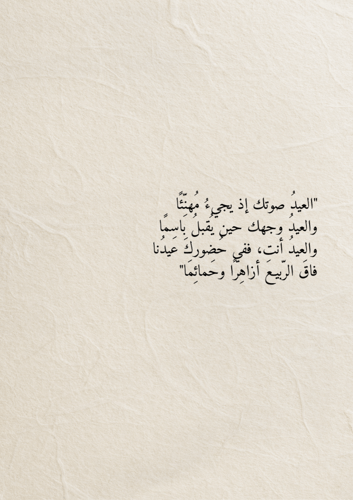 "العيدُ صوتك إذ يجيءُ مُهنِّئًا
والعيدُ وجهك حين يُقبلُ بَاسِمًا
والعيدُ أنتِ، ففي حُضوركَ عيدُنا
فاقَ الرّبيعَ أزاهِرًا وحَمائِمَا"